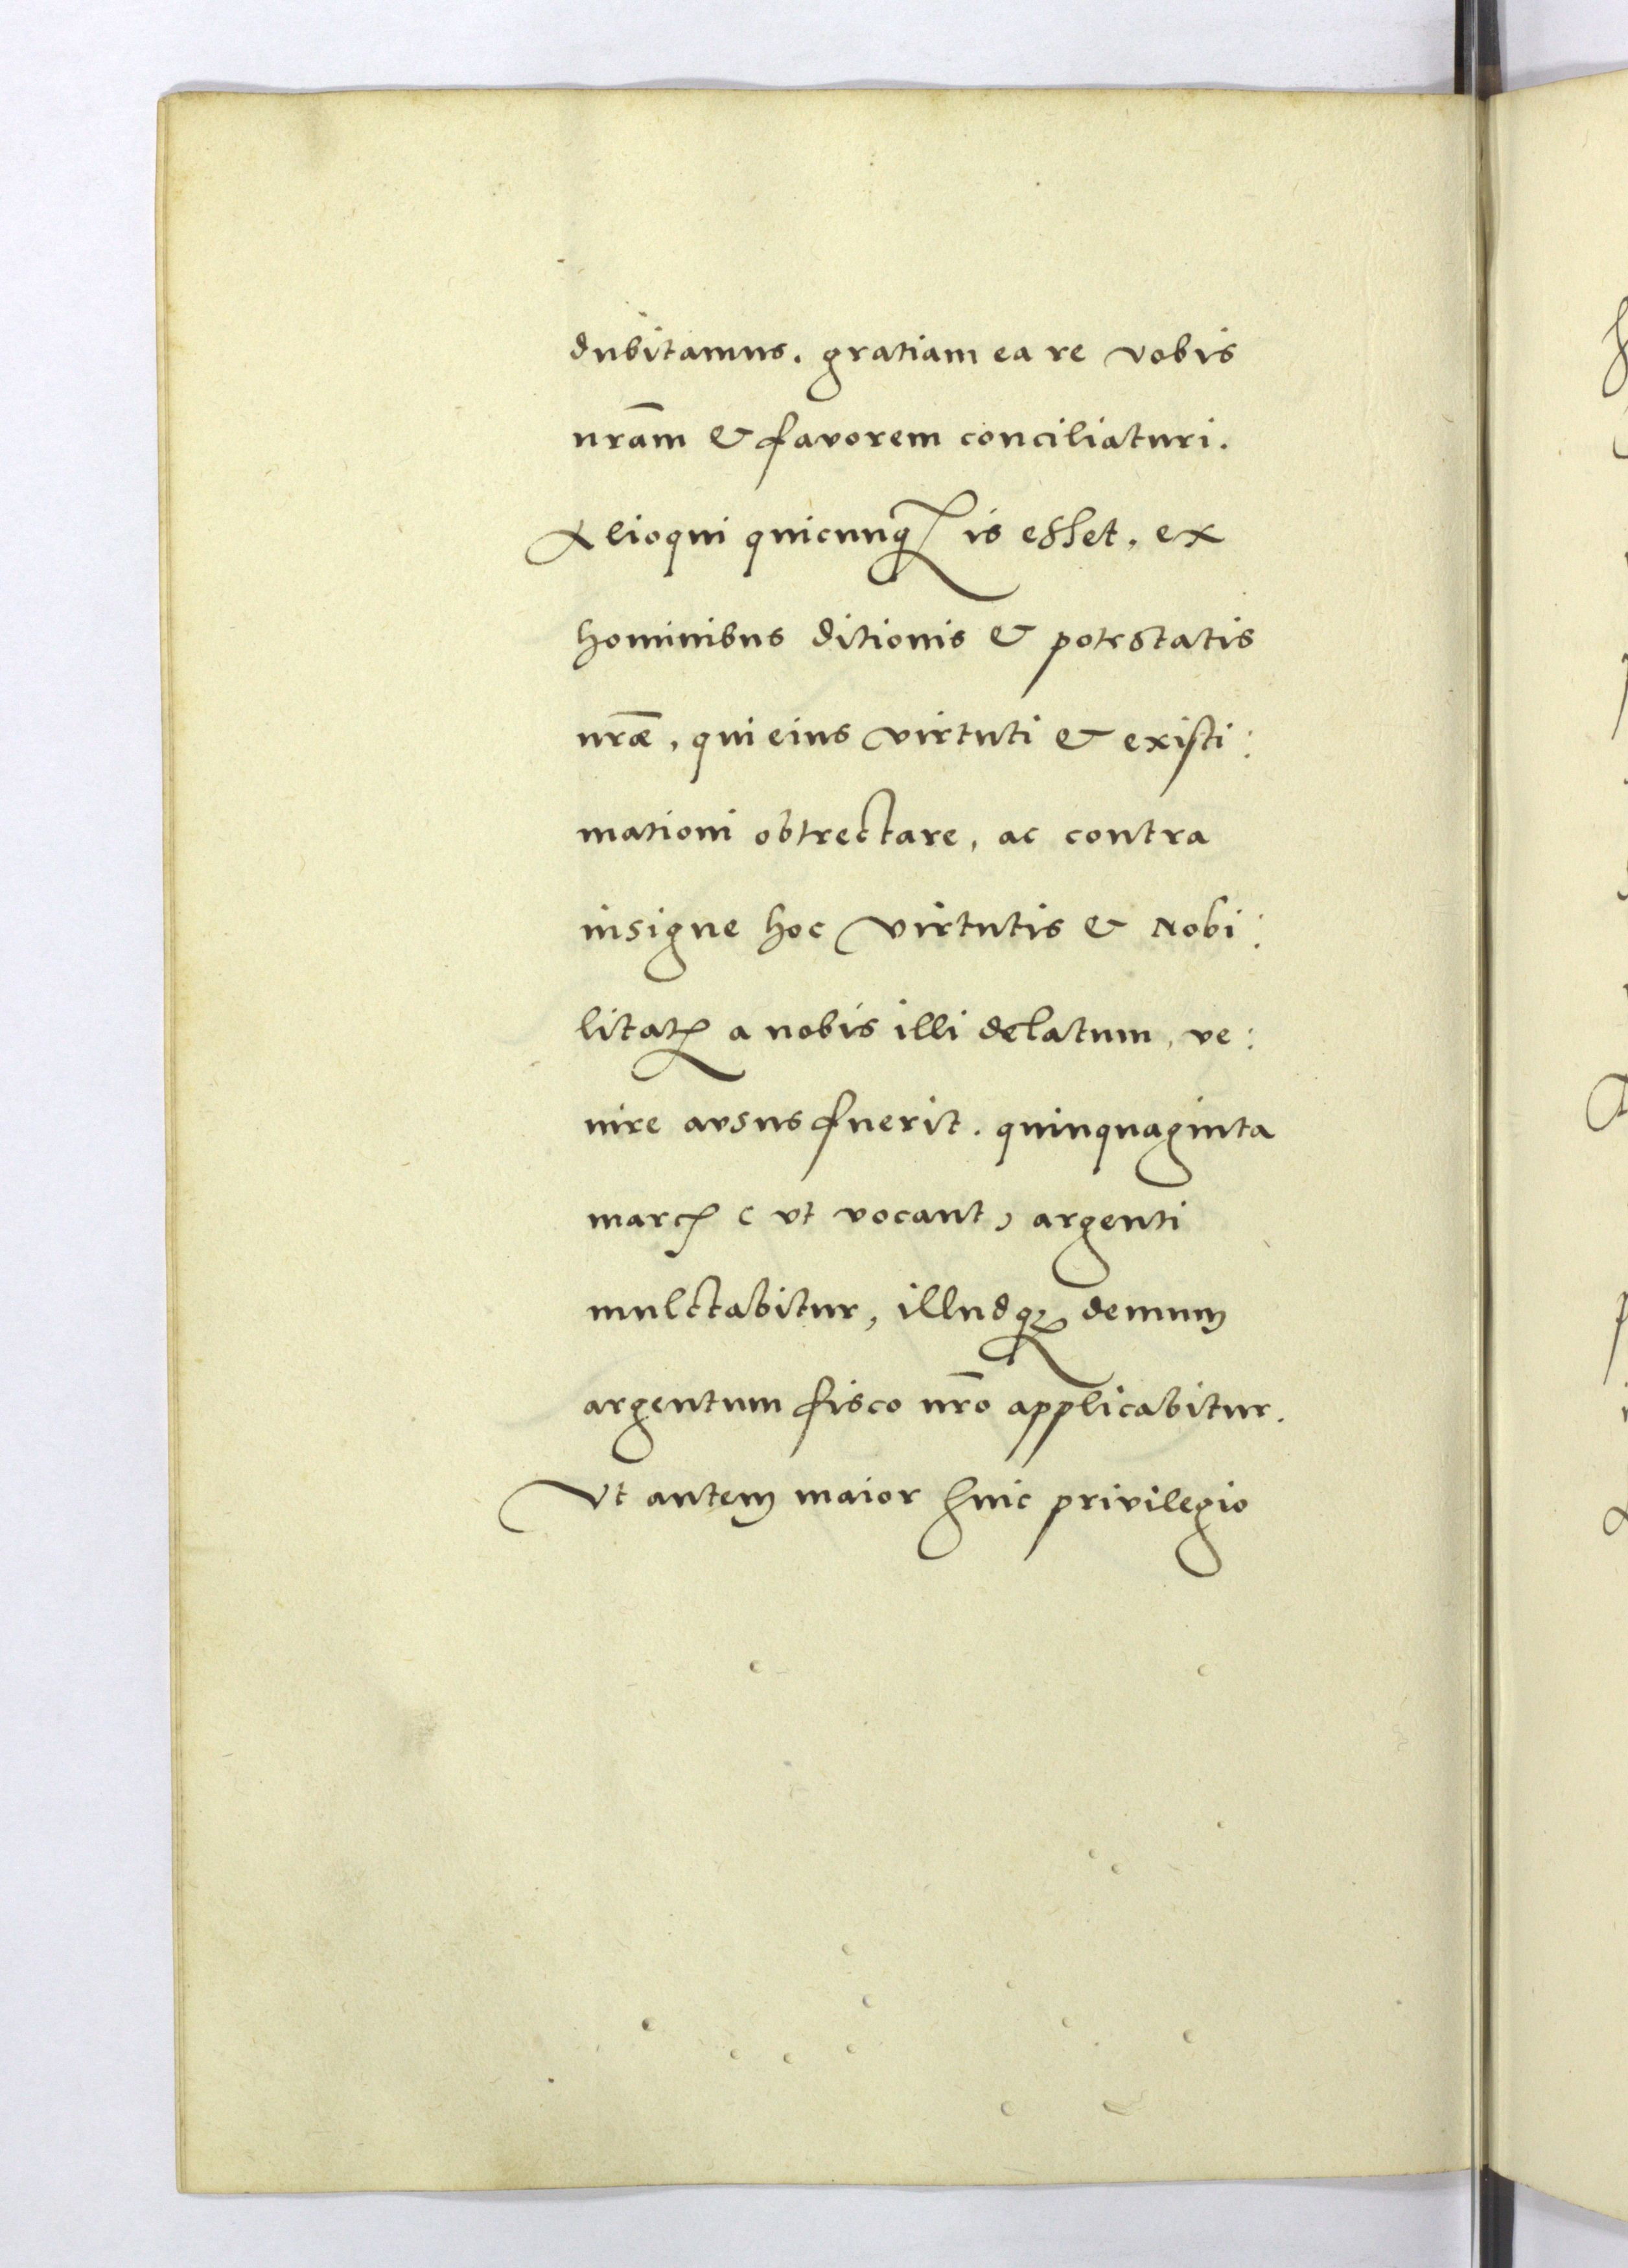 dubitamus. gratiam ea re vobis
nr̃am & favorem conciliaturi.
Alioqui quicunqꝫ is esset, ex
hominibus ditionis & potestatis
nr̃æ, qui eius virtuti & existi:
mationi obtrectare, ac contra
insigne hoc virtutis & Nobi:
litatꝭ a nobis illi delatum, ve:
nire ausus fuerit. quinquaginta
marcꝭ (ut vocant) argenti
mulctabitur, illudqꝫ demum
argentum fisco nr̃o applicabitur.
Vt autem maior huic privilegio